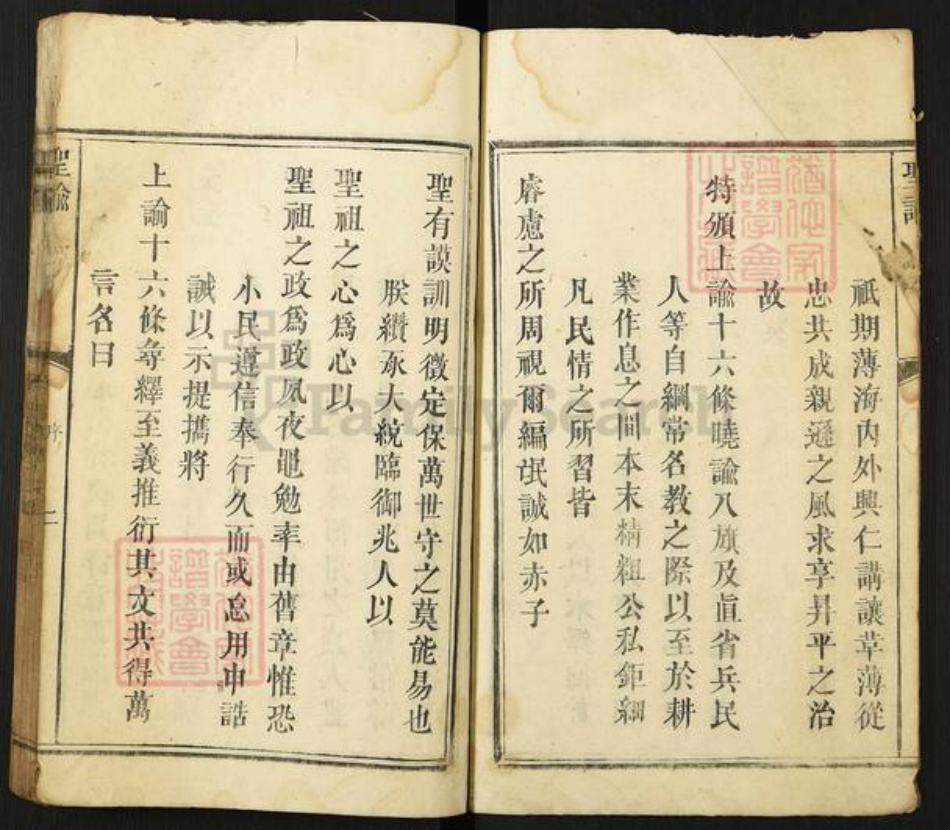 聖諭
祇期薄海內外興仁講讓革薄從
忠共成親遜之風求享昇平之治
故
特頒上諭十六條曉諭八旗及直省兵民
人等自綱常名教之際以至於耕
業作息之間本末精粗公私鉅細
凡民情之所習皆
睿慮之所周視爾編氓誠如赤子
聖有謨訓明徵定保萬世守之莫能易也
朕纘承大統臨御兆人以
聖祖之心爲心以
聖祖之政爲政夙夜黽勉率由舊章惟恐
小民遵信奉行久而或怠用申誥
誠以示提撕將
上諭十六條尋繹至義推衍其文共得萬
言名曰
聖諭
序
二
譜學會
譜學會
FamilySearch